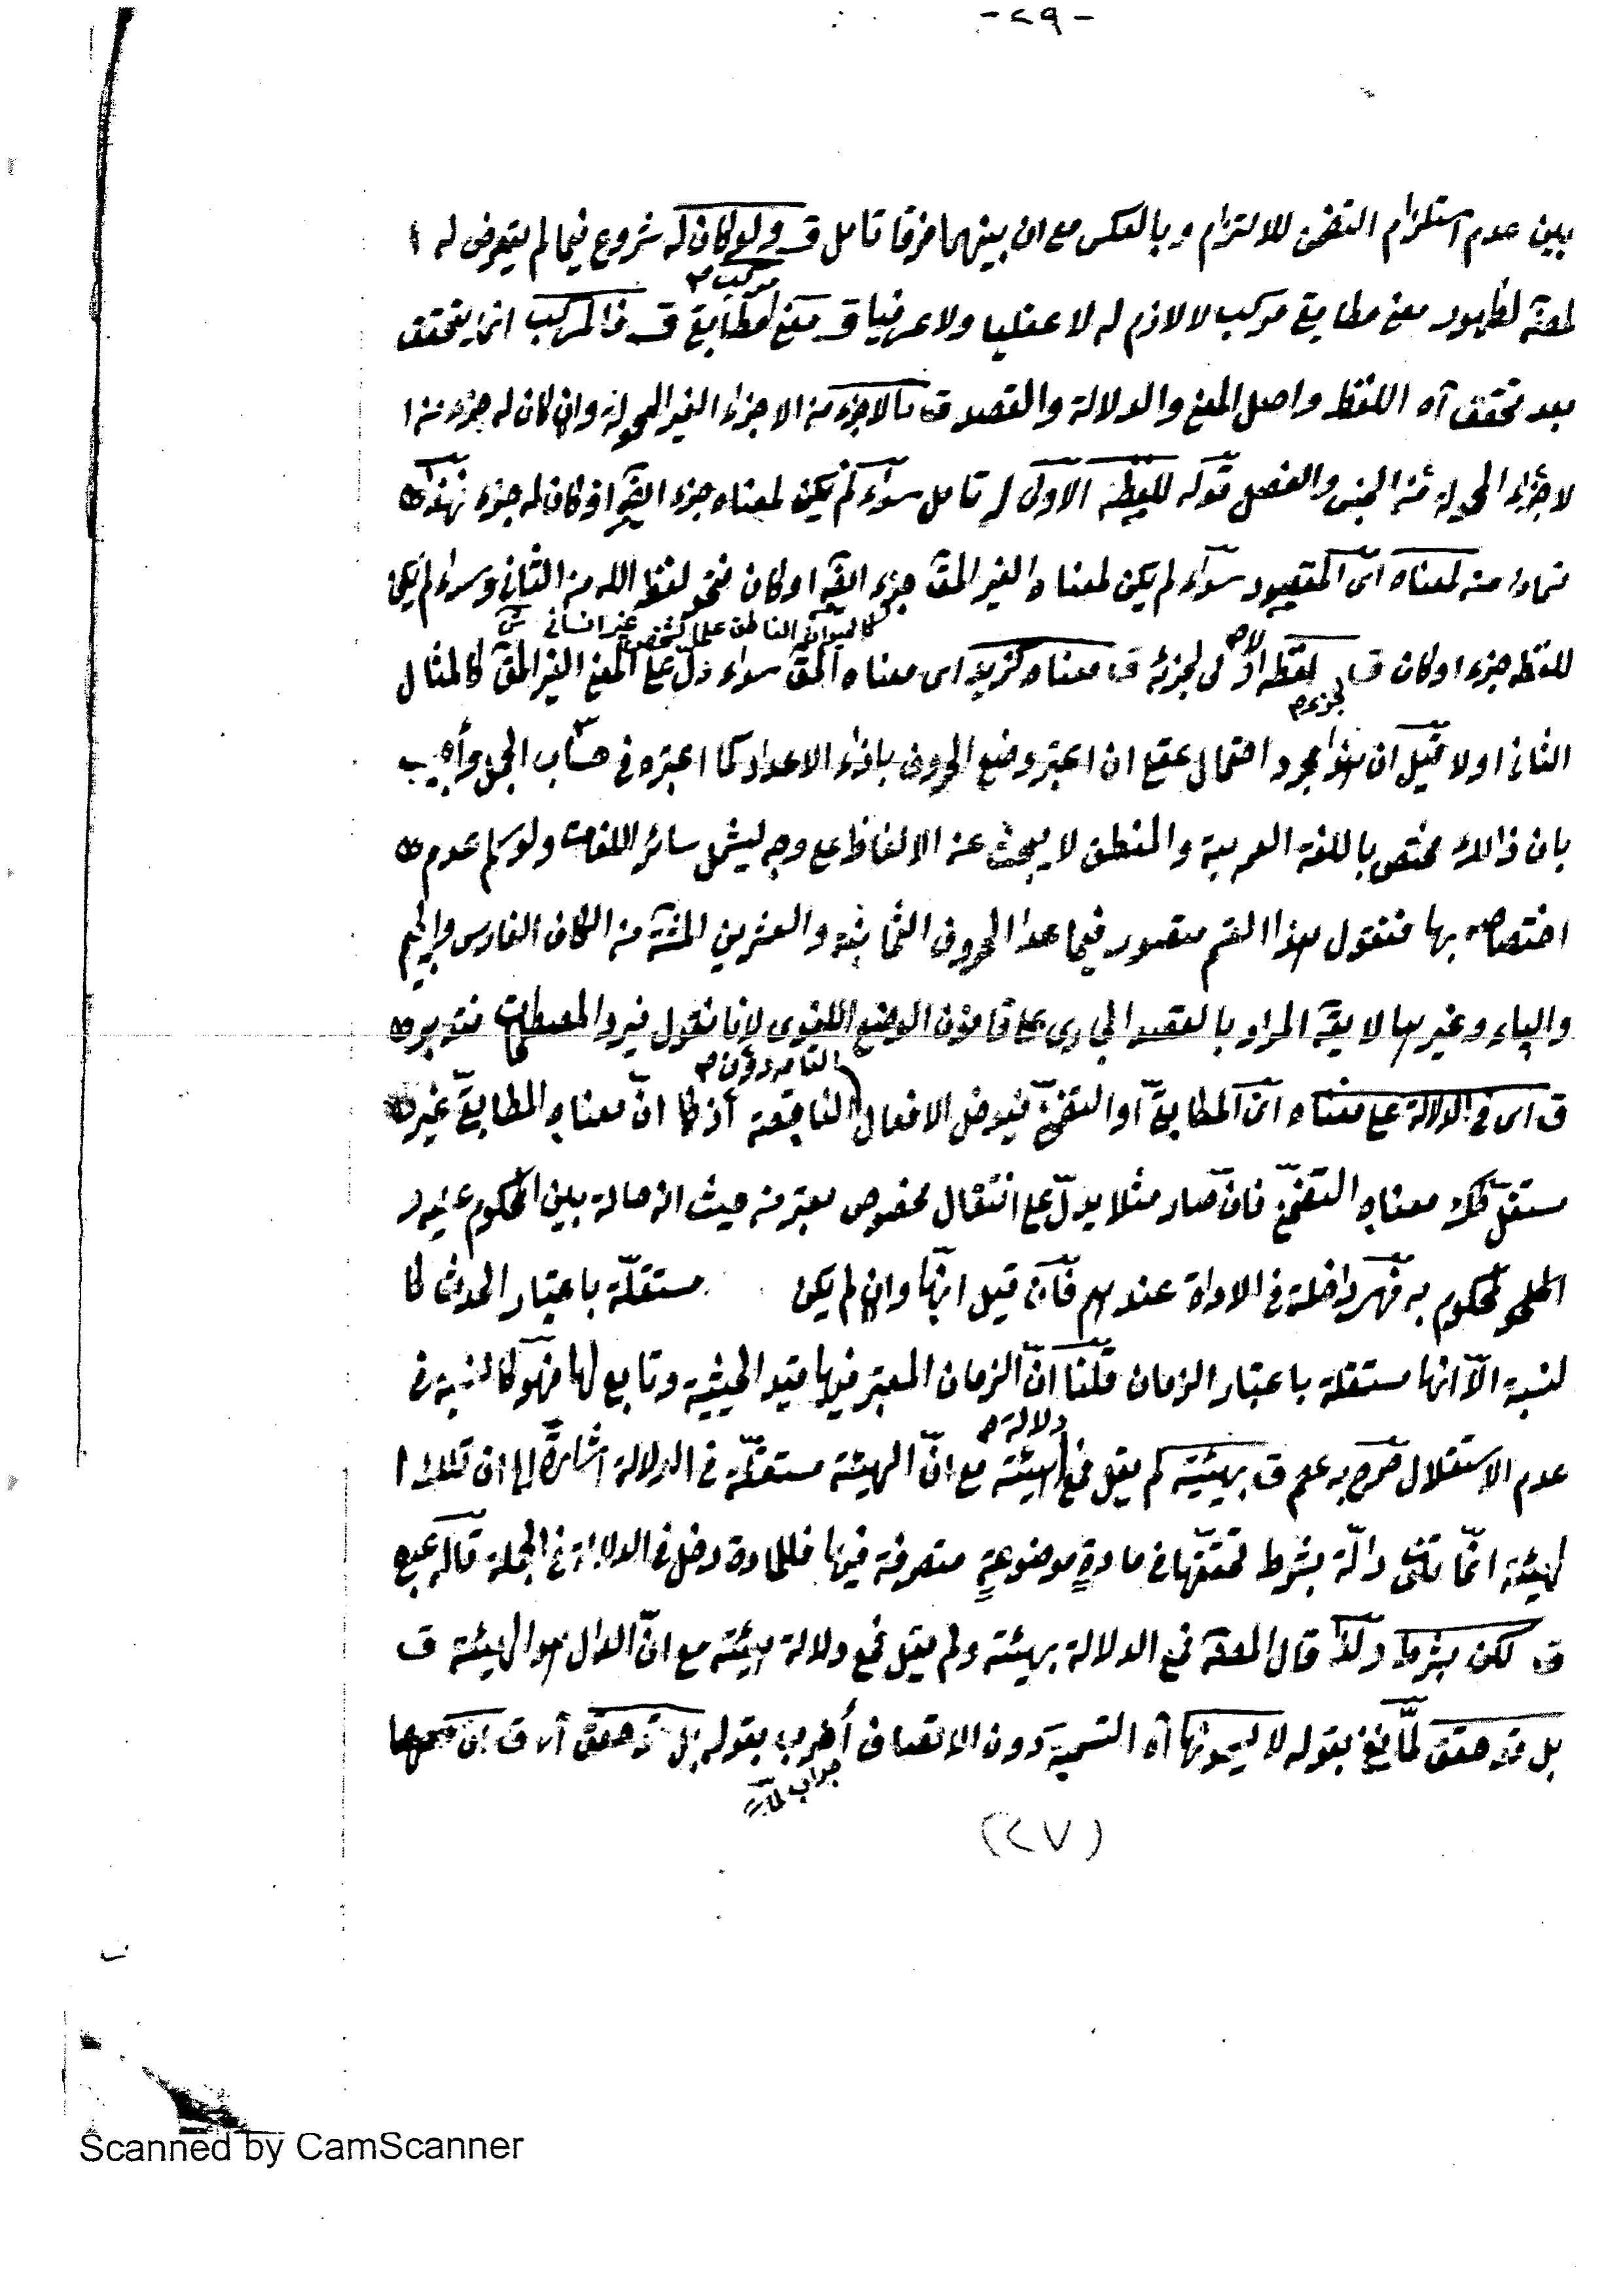 -٢٩-
بين عدم استلزام التضمن للالتزام وبالعكس مع ان بينهما فرقا تامل ق ولو كان له شروع فيما لم يتعرض له ا
مركب
لمص لظهور معنى مطابقى مركب لا لازم له لا عقليا ولا عرفيا ق معنى مطابقى ق فالمركب انما يتحقق
بعد تحقق آه اللفظ واصل المعنى والدلالة والقصد ق مالا جزء من الاجزاء الغير المحمولة وان كان له جزء من ا
لاجزاء المحمولة من الجنس والفصل قوله للفظه الاولى تامل سواء لم يكن لمعناه جزء ايضا او كان له جزء
لمعناه اى المقصود سواء لم يكن لمعناه الغير المق جزء ايضا او كان فنحو لفظ الله من الثانى وسواء لم يكن
كالحيوان الناطق علما لشخص غير انسانى
للفظه جزء او كان ق لفظه لجزئه ق معناه كزيد اى معناه المق سواء دل على المعنى الغير المق كالمثال
لجزء
الثانى اولا قيل ان هذا مجرد احتمال عقلى ان اعتبر وضع الحروف باذاء الاعداد كما اعتبره فى حساب الجمل وأجيب
بان ذالك مختص باللغة العربية والمنطق لا يبحث عن الالفاظ على وجه ليشمل سائر اللغات ولو سلم عدم
اختصاصه بها فنقول هذا القسم متصور فيما عدا الحروف الثمانية والعشرين من الكاف الفارسى والجيم
والپاء وغيرها لا يق المراد بالقصد الجارى على قانون الوضع اللغوى لانا نقول فيرد المعطلات فتدبر
التامة دون
ق اى فى الدلالة على معناه اى المطابقى او التضمنى فيدخل الافعال الناقصة اذ كما ان معناه المطابقى غير
مستقل كك معناه التضمنى فان صار مثلا يدل على انتقال مخصوص معتبر من حيث انه حالة بين المحكوم عليه و
المحكوم به فهى داخلة فى الاداة عندهم فان قيل انها وان لم يكن مستقلة باعتبار الحدث كا
لنسبة الا انها مستقلة باعتبار الزمان قلنا ان الزمان المعتبر فيها قيد الحيثية وتابع لها فهو كالنسبة فى
دلالة
عدم الاستقلال صرح به ق بهيئته لم يقل هيئة مع ان الهيئة مستقلة فى الدلالة اشارة الى ان تلك ا
لهيئة انما تكن دالة بشرط تحققها فى مادة موضوعة متصرفة فيها فللمادة دخل فى الدلالة فى الجملة قاله
ق لكن بشرط ولذا قال المص فمع الدلالة بهيئته ولم يقل فمع دلالة هيئته مع ان الدال هو الهيئة ق
بل قد حقق لما نفى بقوله لا يسمونها آه التسمية دون الاتصاف أضرب بقوله بل قد حقق آه ق
جواب لما
(٢٧)
Scanned by CamScanner